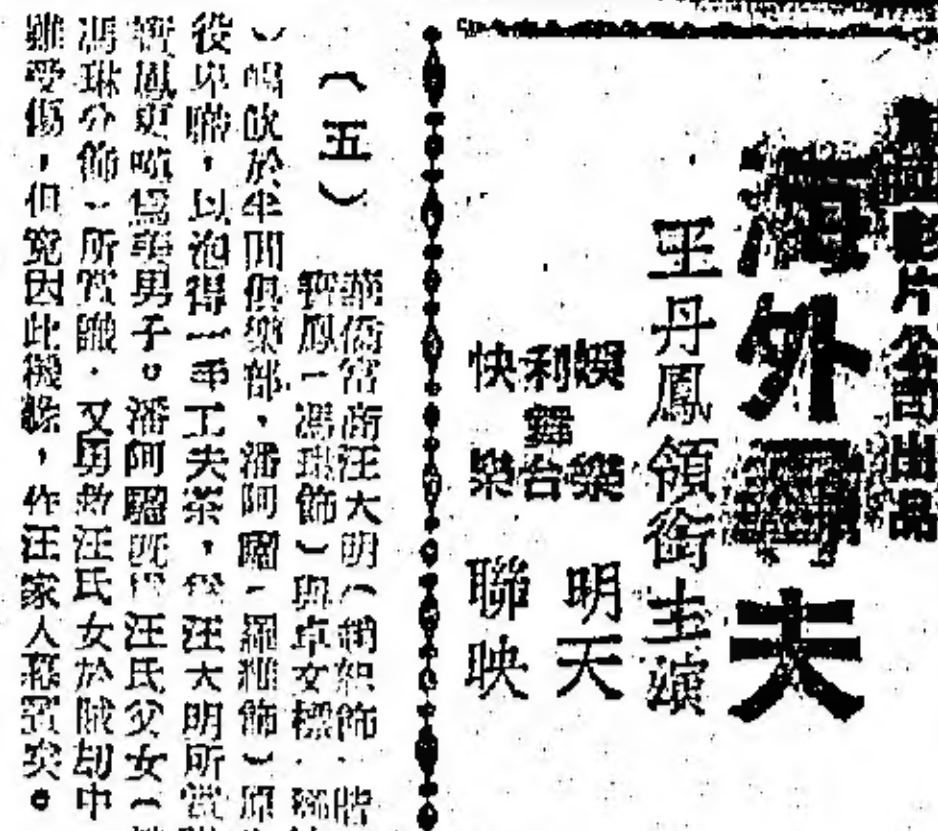 影片公司出品
海外尋夫
王丹鳳領銜主演
娛樂
利舞台
快樂
明天
聯映
（五）
華僑富商汪大明（飾‧偕
寶鳳（馮琳飾）與卓女標
）暢飲於半閒俱樂部，潘阿驢（羅維飾）原
役卑職，以泡得一手工夫茶，汪大明所賞
寶鳳更為美男子。潘阿驢既汪氏父女（
馮琳分飾）所賞識‧又勇救汪氏女於賊劫中
雖受傷，但竟因此機緣，作汪家人幕賓矣。